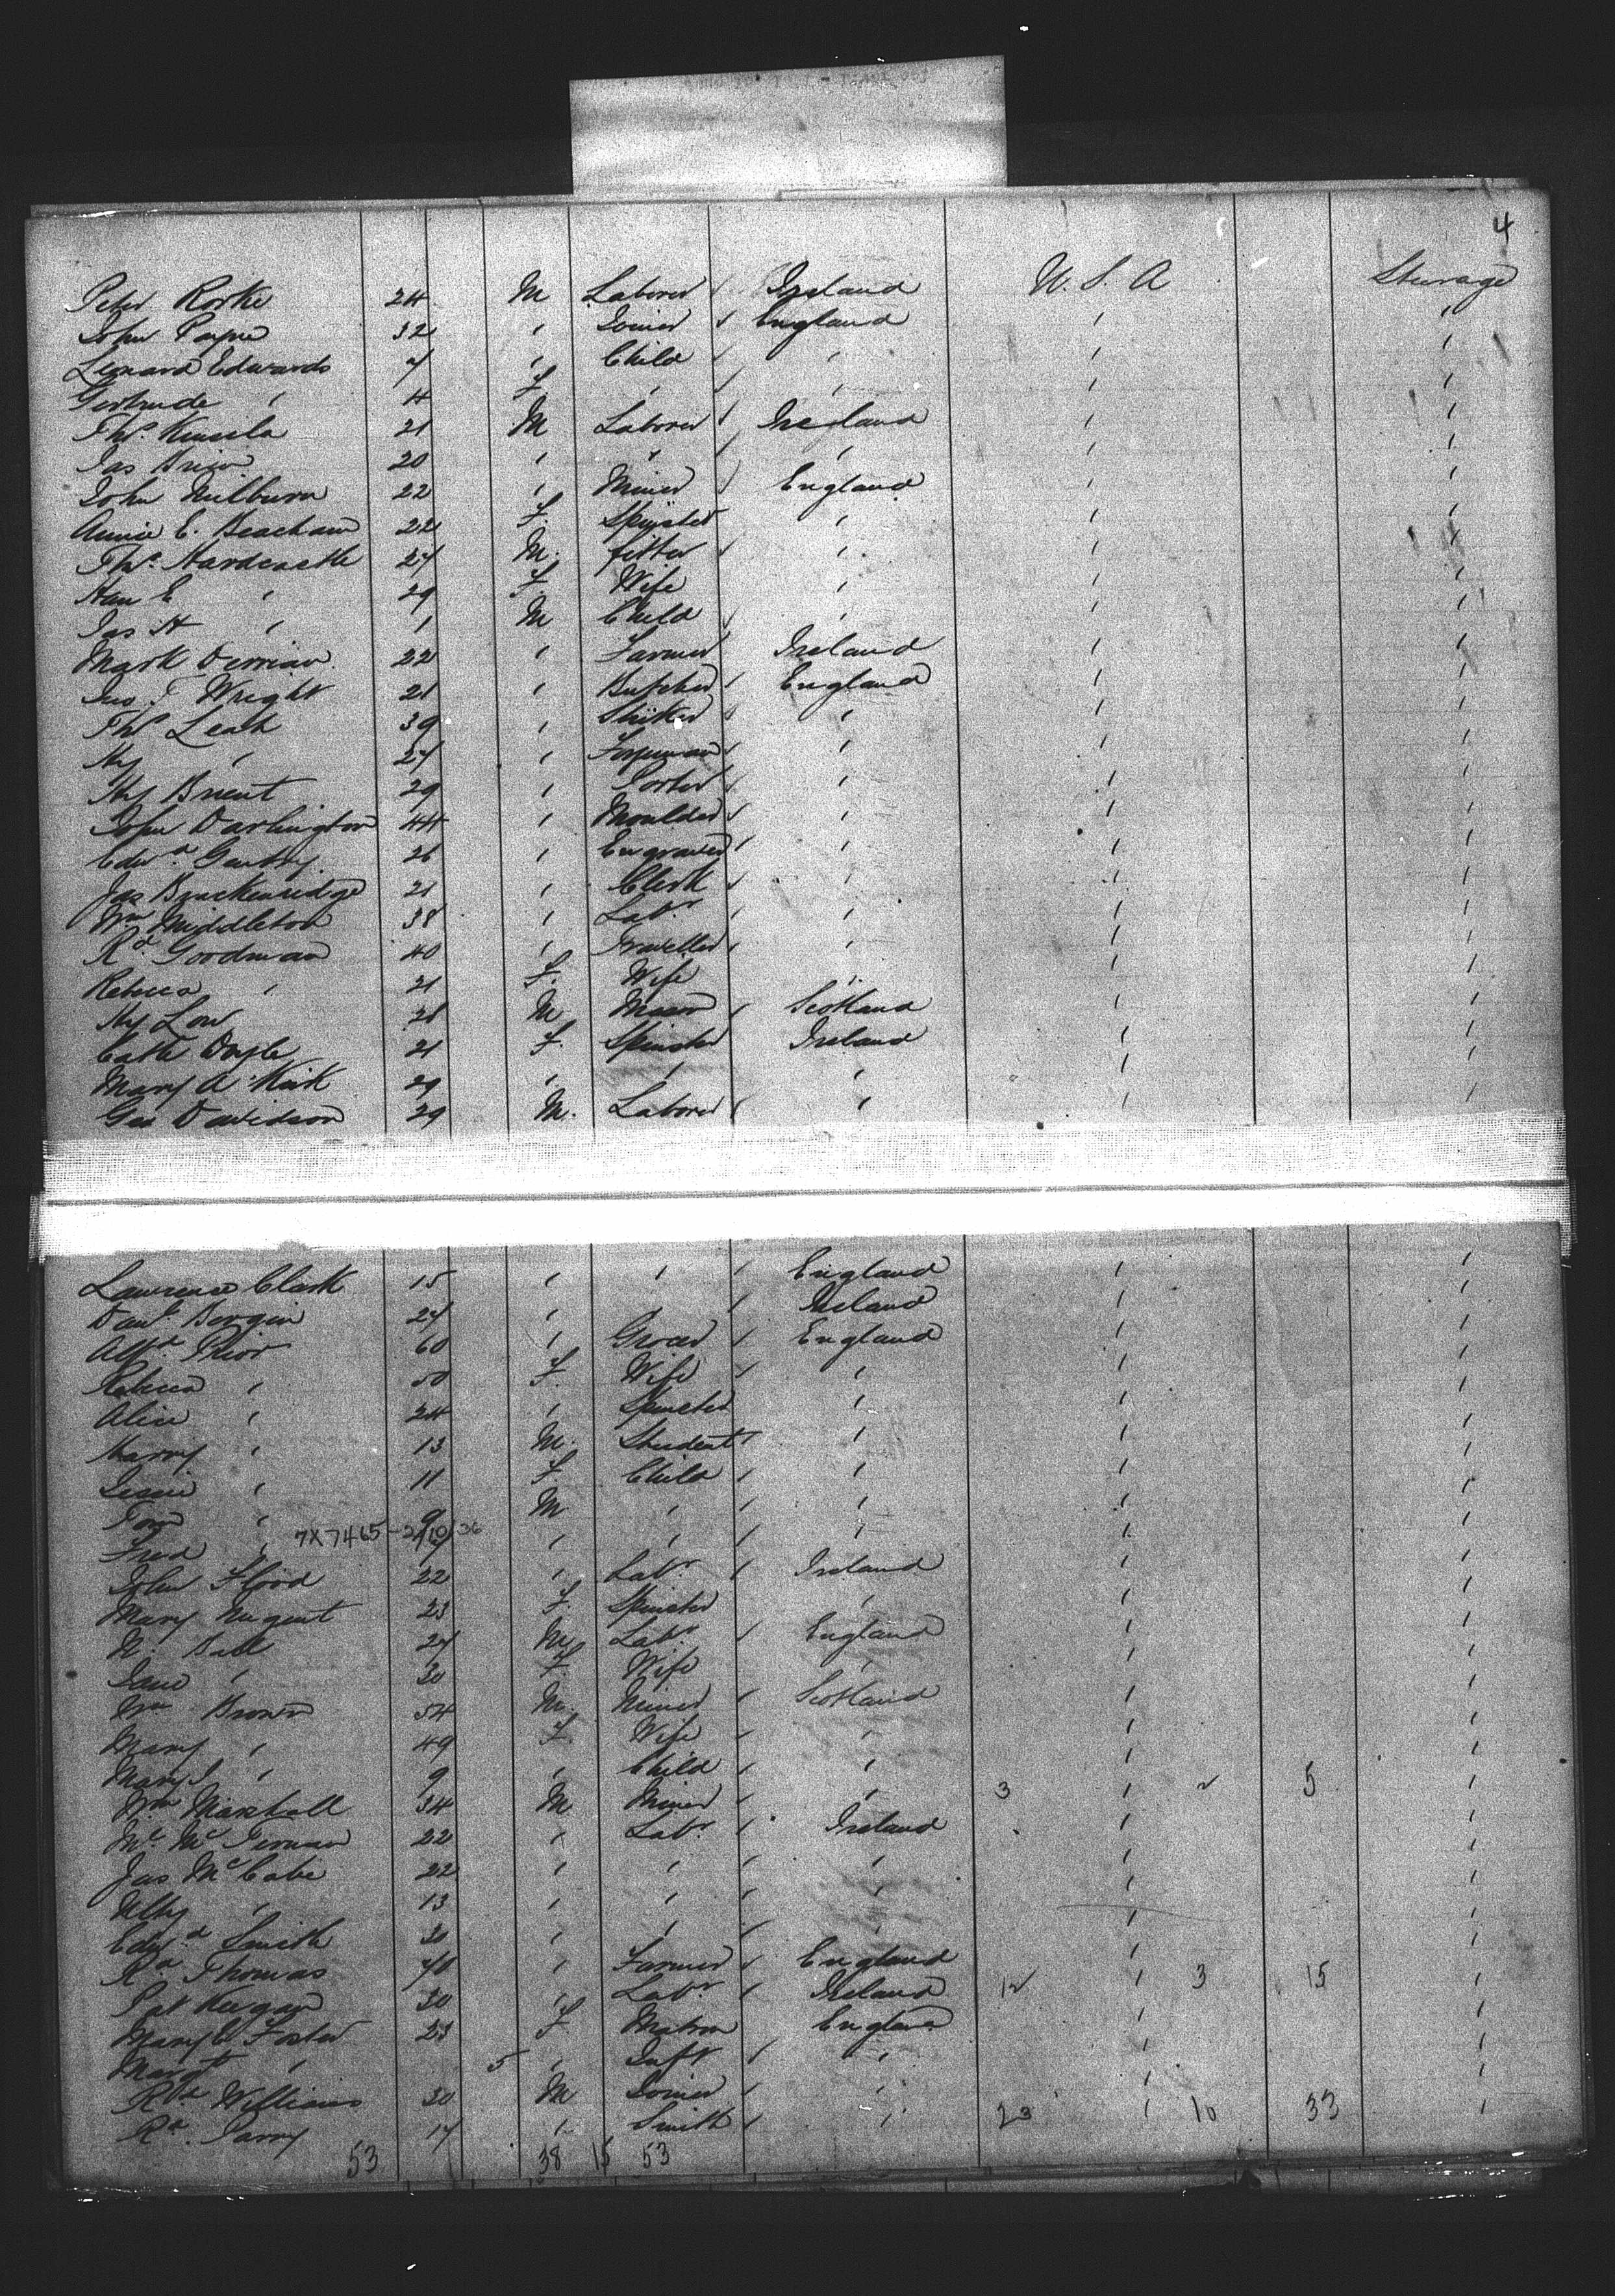 4
Peter Rorke 24 M Laborer Ireland U.S.A Steerage
John Payne 32 " Joiner England " "
Leonard Edwards 7 " Child " " "
Gertrude " 4 F " " " "
Thos. Kinsela 21 M Laborer Ireland " "
Jas 20 " " " " "
John Milburn 22 " Miner England " "
Annie E. Beacham 22 F. Spinster " " "
Thos. Hardcastle 27 M. fitter " " "
Han E " 29 F. Wife " " "
Jas H " 1 M Child " " "
Mark 22 " Farmer Ireland " "
Jno. T Wright 21 " Butcher England " "
Thos Leah 39 " Striker " " "
Hy " 27 " " " "
Hy Brient 29 " Porter " " "
John Darlington 44 " Moulder " " "
Edwd. 26 " Engraver " " "
Jas Brackenridge 21 " Clerk " " "
Wm Middleton 38 " Labr. " " "
Rd. Goodman 40 " Traveller " " "
Rebecca " 21 F. Wife " " "
Hy Low 28 M Mason Scotland " "
Cath Doyle 21 F. Spinster Ireland " "
Mary A Kirk 29 " " " " "
Geo Davidson 29 M. Laborer " " "
Lawrence Clark 15 " " England " "
Danl. Bergin 27 " " Ireland " "
Alfd. Prior 60 " Grocer England " "
Rebecca " 50 F. Wife " " "
Alice " 24 " Spinster " " "
Harry " 13 M. Student " " "
Jessie " 11 F. Child " " "
Tom " 9 M " " " "
Fred " 7X7465-2/10/36 " " " " "
John Flood 22 " Labr. Ireland " "
Mary Nugent 23 F. Spinster " " "
N. Ball 27 M Labr. England " "
Jane " 30 F. Wife " " "
Wm Brown 54 M. Miner Scotland " "
Mary " 49 F. Wife " " "
Mary J " 9 " Child " " "
Wm Marshall 34 M Miner " 3 " 2 5 "
McTernan 22 " Labr. Ireland " "
Jas McCabe 22 " " " " "
" 13 " " " " "
Edwd Smith " " " " "
Rd Thomas 40 " Farmer England " "
Pat Keegan 30 " Labr Ireland 12 " 3 15 "
Mary E Foster 23 F Matron England " "
Margt " 5 " Inft " " "
Rd. Williams 30 M Joiner " " "
Rd. Parry 17 " Smith " 23 " 10 33 "
53 38 15 53